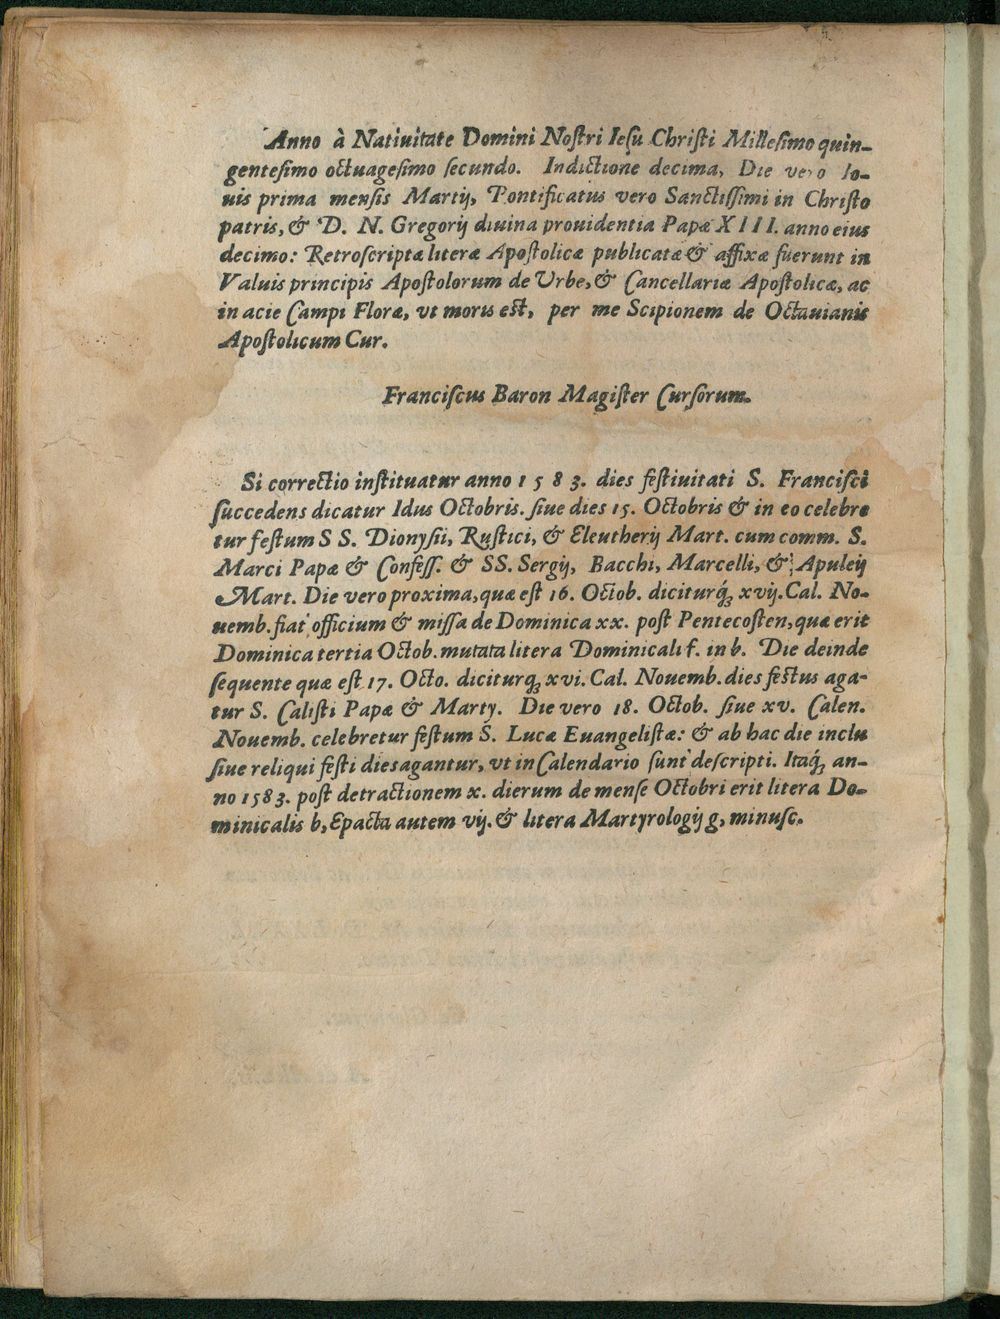 Anno à Natiuitate Domini Nostri Iesu Christi Millesimo quin-
gentesimo octuagesimo secundo. Indictione decima, Die vero Io-
uis prima mensis Martij, Pontificatus vero Sanctissimi in Christo
patris, & D. N. Gregorij diuina prouidentia Papæ XIII. anno eius
decimo: Retroscriptæ literæ Apostolicæ publicatæ & affixæ fuerunt in
Valuis principis Apostolorum de Vrbe, & Cancellariæ Apostolicæ, ac
in acie Campi Floræ, vt moris est, per me Scipionem de Octauianis
Apostolicum Cur.
Franciscus Baron Magister Cursorum.
Si correctio instituatur anno 1583. dies festiuitati S. Francisci
succedens dicatur Idus Octobris. siue dies 15. Octobris & in eo celebre
tur festum SS. Dionysii, Rustici, & Eleutherij Mart. cum comm. S.
Marci Papæ & Confess. & SS. Sergij, Bacchi, Marcelli, & Apuleij
Mart. Die vero proxima, quæ est 16. Octob. diciturq́; xvij. Cal. No-
uemb. fiat officium & missa de Dominica xx. post Pentecosten, quæ erit
Dominica tertia Octob. mutata litera Dominicali f. in b. Die deinde
sequente quæ est 17. Octo. diciturq; xvi. Cal. Nouemb. dies festus aga-
tur S. Calisti Papæ & Marty. Die vero 18. Octob. siue xv. Calen.
Nouemb. celebretur festum S. Lucæ Euangelistæ: & ab hac die inclu
siue reliqui festi dies agantur, vt in Calendario sunt descripti. Itaq́; an-
no 1583. post detractionem x. dierum de mense Octobri erit litera Do-
minicalis b, Epacta autem vij. & litera Martyrologij g, minusc.